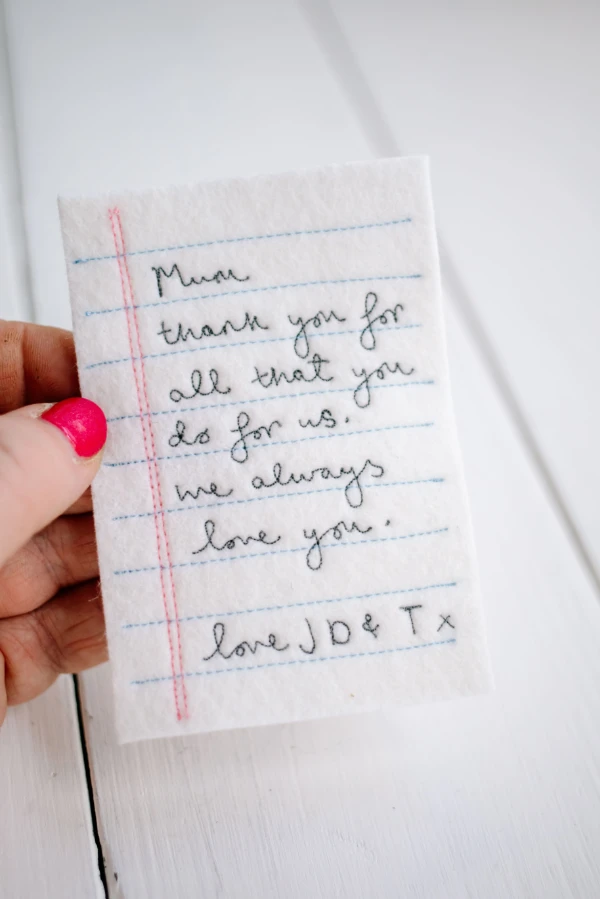 Mum
thank you for
all that you
do for us.
we always
love you.
love J D & T x